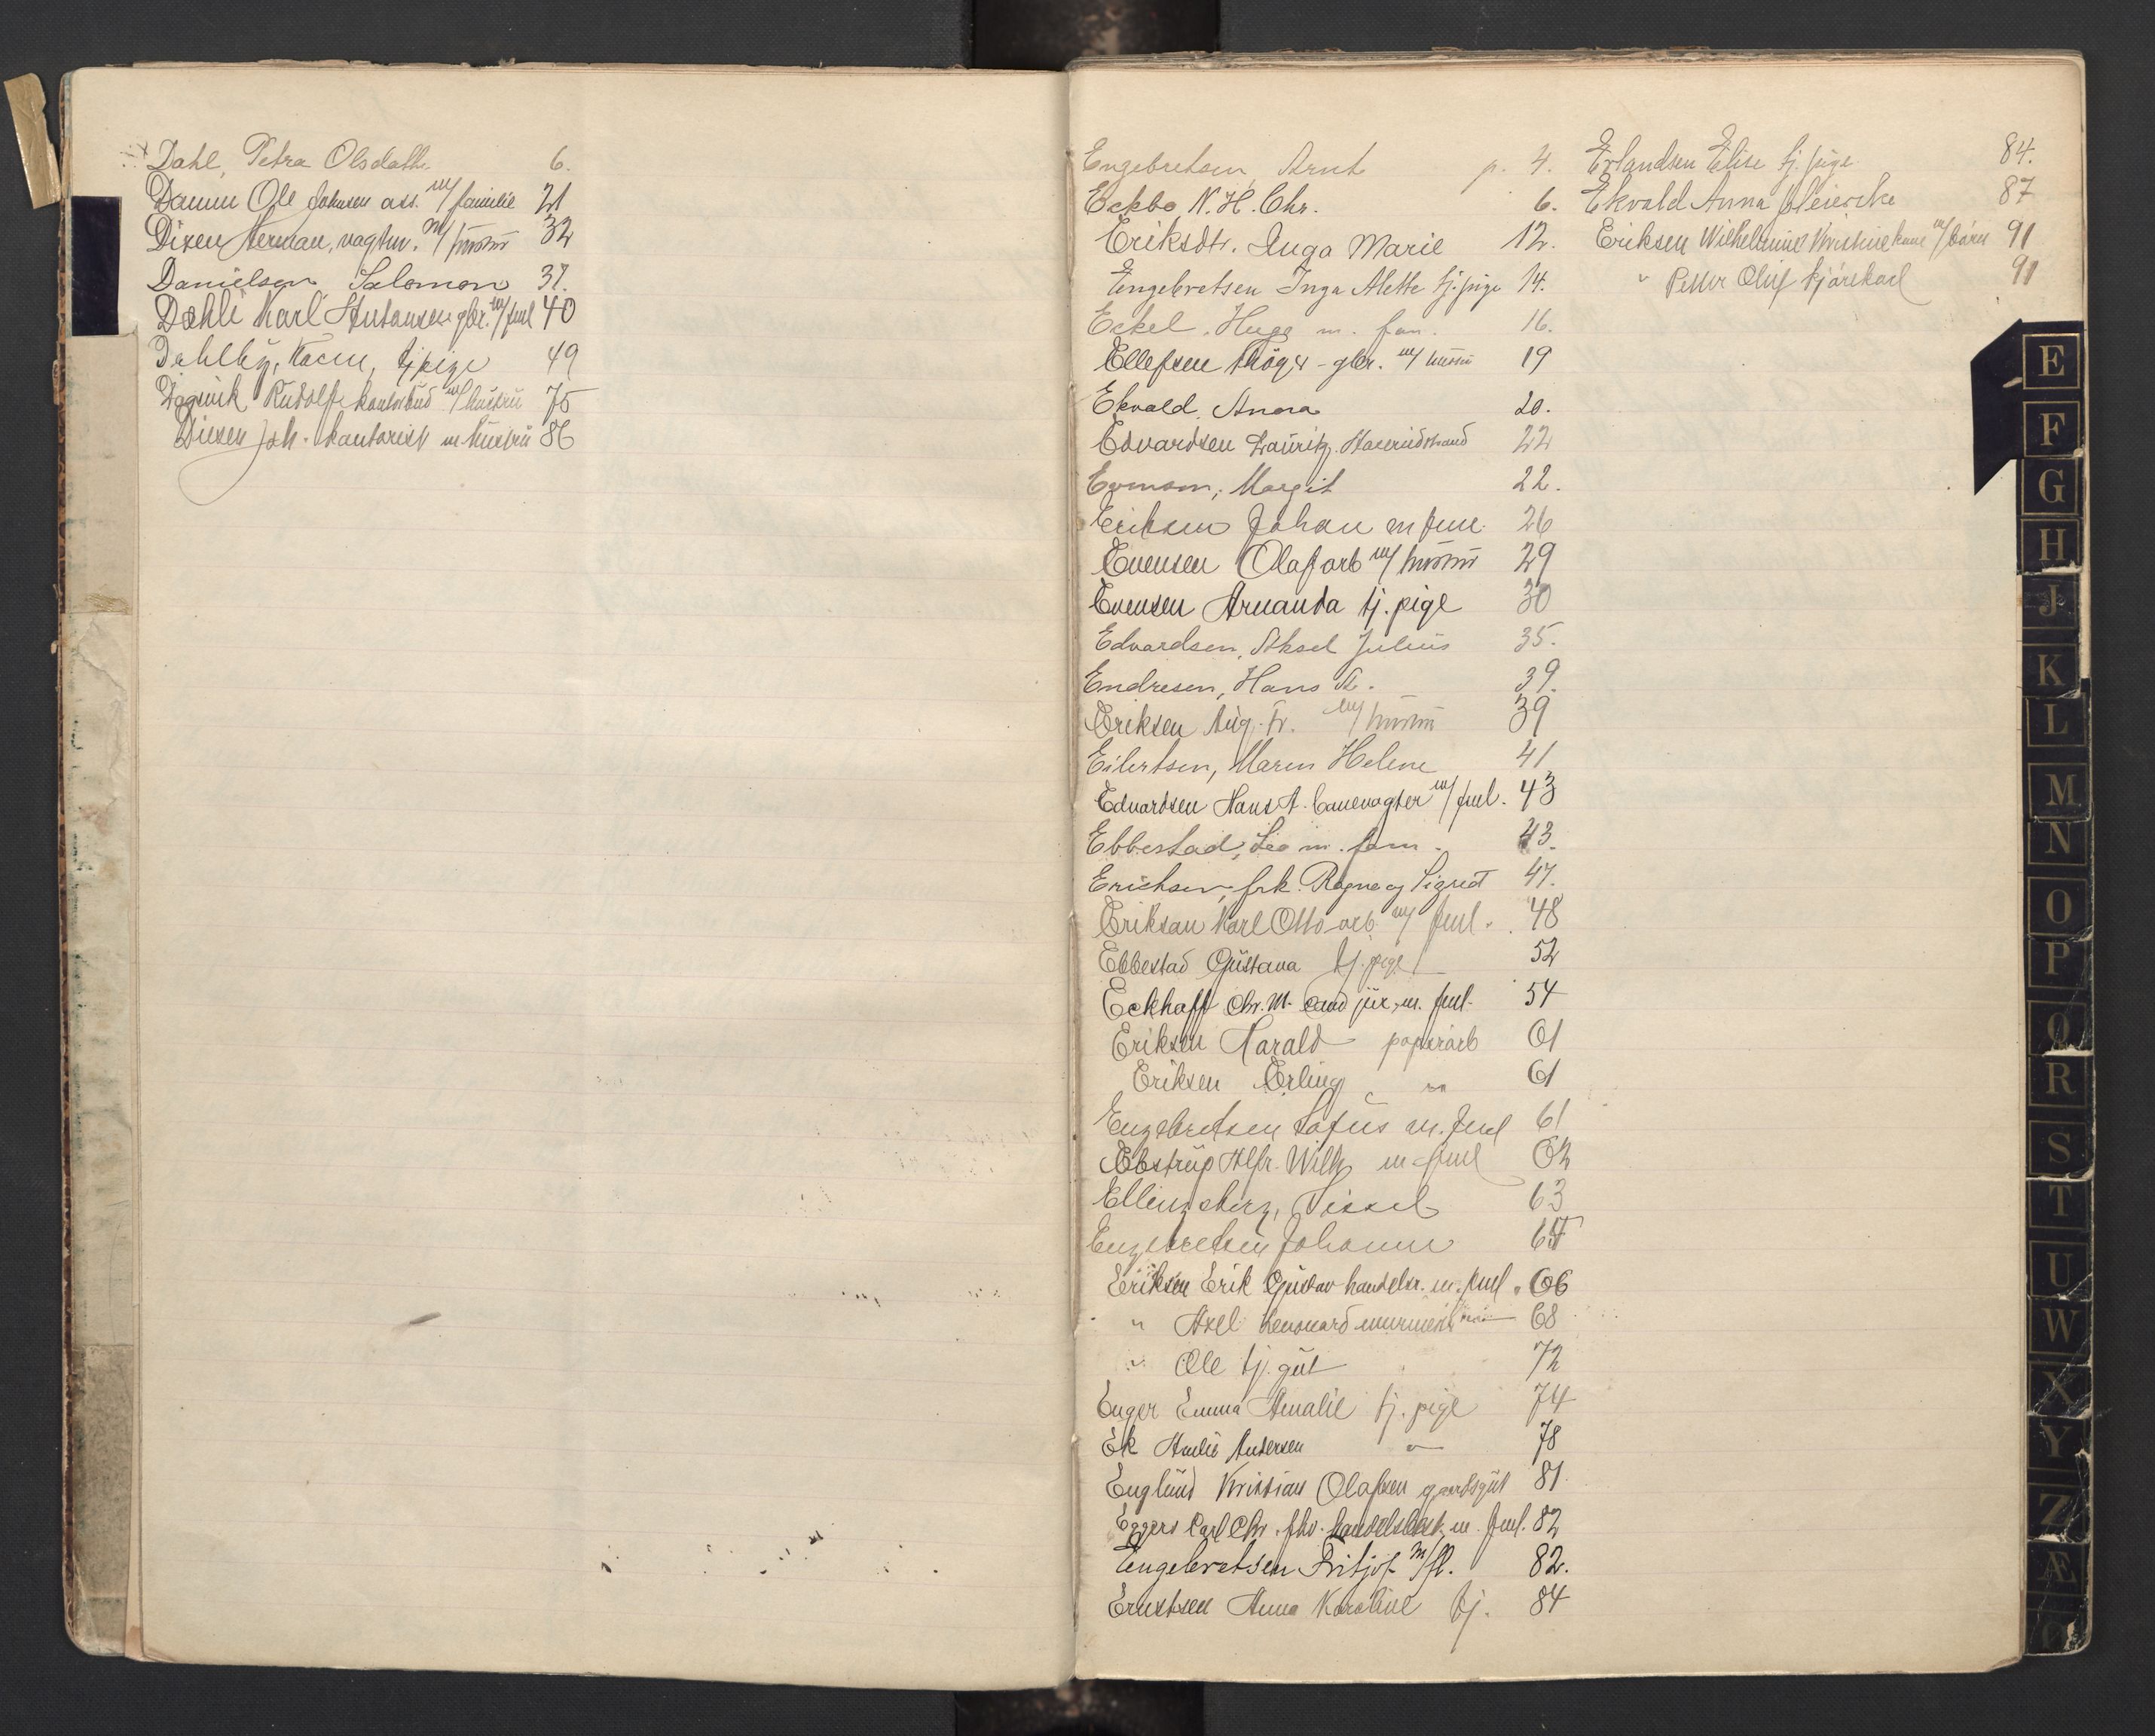 Dahl, Petra Olsdatter 6.
Damm Ole Johnsen ass. m/ familie 21
Dixen Herman, vagtm. m/ hustru 32
Danielsen Salomon 37.
Dæhli Karl gbr. m/ fml 40
Dahlby, Karen, tj pige 49
Rudolf kontorbud m/ hustru 75
Joh. kontorist m hustru 86
Engebretsen, Arnt p. 4.
Eckbo, N. H. Chr. 6.
Eriksdtr. Inga Marie 12.
Engebretsen Inga Alette tj. pige 14.
Eckel, Hugo m. fam. 16.
Ellefsen gbr. m/ hustru 19
Ekvald, Anna 20.
Edvardsen Lauritz 22
Margit 22.
Eriksen Johan m fml. 26
Evensen Olaf arb m/ hustru 29
Evensen Amanda tj. pige 30
Edvardsen, Aksel Julius 35.
Endresen, Hans A. 39.
Eriksen Aug. Fr. m/ hustru 39
Eilertsen, Maren Helene 41
Edvardsen Hans A. banevogter m/ fml. 43
Ebbestad, Leo m. fam. 43.
Erichsen, frk. Ragna og Sigrid 47.
Eriksen Karl Otto arb m/ fml. 48
Ebbestad Gustava tj. pige 52
Eckhoff Chr. M. cand jur. m. fml. 54
Eriksen Harald papirarb 61
Eriksen Erling " 61
Engebretsen Lofus m. fml 61
Ebstrup Alfr. Wilh m fml 62
Ellingsberg, Sissel 63
Engebretsen Johanne 64
Eriksen Erik Gustav handelsr. m. fml. 66
" Axel 68
" Ole tj. gut 72
Enger Emma Amalie tj. pige 74
Ek Andersen " 78
Englund Kristian Olafsen gaardsgut 81
Eggers Carl Chr. fhv. m. fml. 82
Engebretsen Fritjof m/fl. 82.
Erustsen Anna Karoline tj. 84
Erlandsen Elise tj. pige 84.
Ekvald Anna Meierske 87
Eriksen Wilhelmine Kristine kone m/ børn 91
" Petter Oluf kjørekarl 91
E
F
G
H
J
K
L
M
N
O
P
Q
R
S
T
U
W
X
Y
Z
Æ
Ø